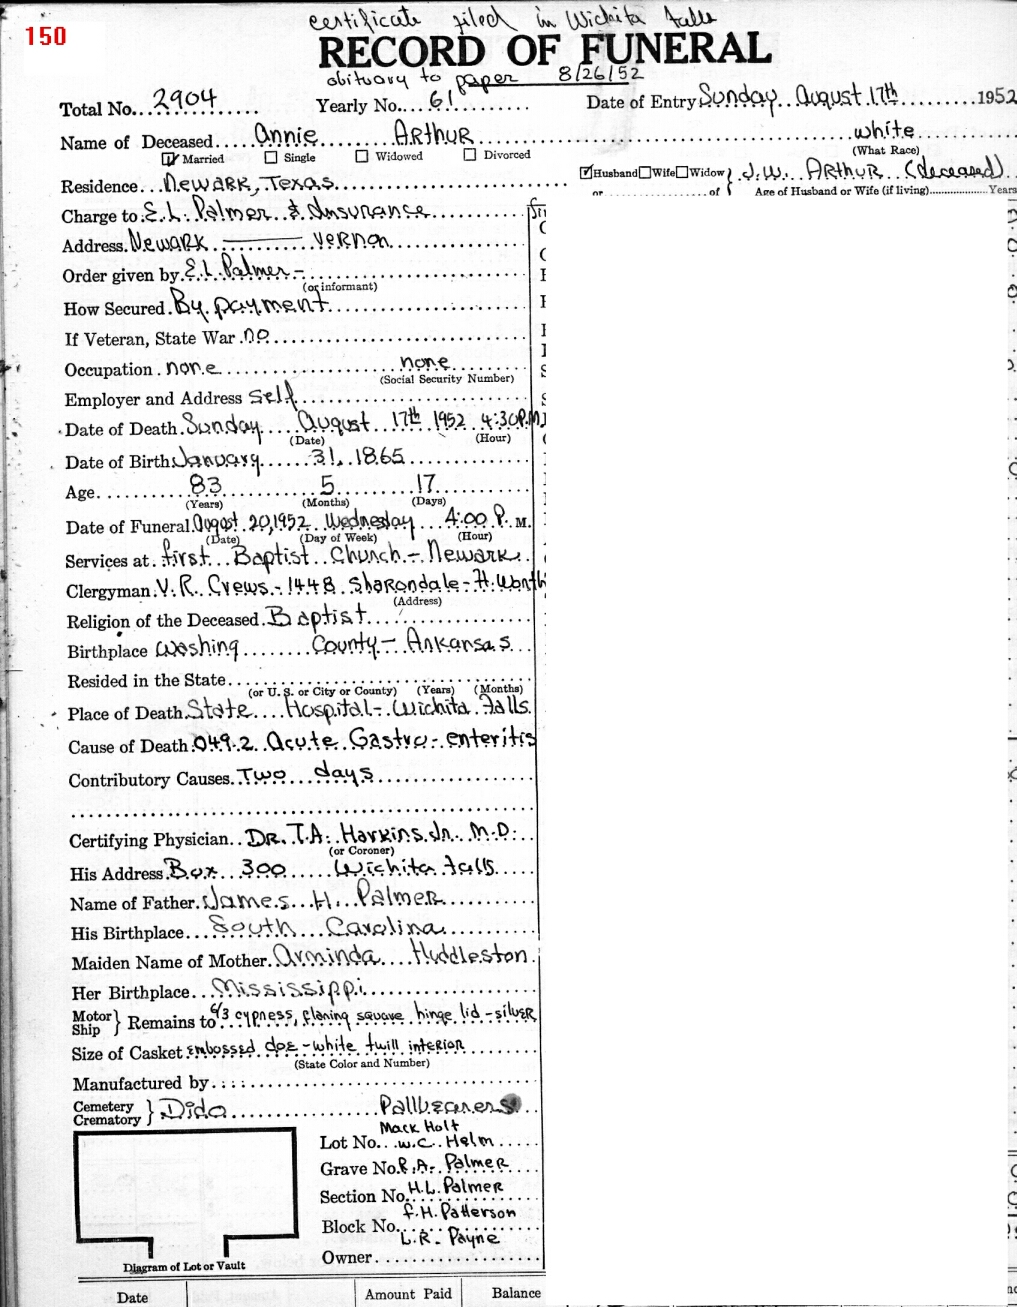 certificate filed in Wichita Falls
150
RECORD OF FUNERAL
obituary to paper 8/26/52
Total No. 2904 Yearly No. 61 Date of Entry Sunday August 17th 1952
Name of Deceased Annie Arthur white
☑ Married ☐ Single ☐ Widowed ☐ Divorced (What Race)
☑ Husband ☐ Wife ☐ Widow } J.W. Arthur (deceased)
Residence Newark, Texas or of Age of Husband or Wife (if living) Years
Charge to E.L. Palmer & Insurance
Address Newark — Vernon
Order given by E.L. Palmer -
(or informant)
How Secured By payment
If Veteran, State War no
Occupation none none
(Social Security Number)
Employer and Address Self
Date of Death Sunday August 17th 1952 4:30 P.M.
(Date) (Hour)
Date of Birth January 31, 1865
Age 83 5 17
(Years) (Months) (Days)
Date of Funeral August 20, 1952 Wednesday 4:00 P. M.
(Date) (Day of Week) (Hour)
Services at first Baptist Church - Newark
Clergyman V.R. Crews - 1448 Sharondale - Ft. Worth
(Address)
Religion of the Deceased Baptist
Birthplace Washing County - Arkansas
Resided in the State
(or U. S. or City or County) (Years) (Months)
Place of Death State Hospital - Wichita Falls
Cause of Death 049.2 Acute Gastro-enteritis
Contributory Causes Two days
Certifying Physician Dr. T.A. Harkins Jr. M.D.
(or Coroner)
His Address Box 300 Wichita Falls
Name of Father James H. Palmer
His Birthplace South Carolina
Maiden Name of Mother Arminda Huddleston
Her Birthplace Mississippi
Motor Ship } Remains to 6/3 cypress, flaning square hinge lid - silver
Size of Casket embossed doe - white twill interior
(State Color and Number)
Manufactured by
Cemetery Crematory } Dido Pallbearers
Mack Holt
Lot No. W.C. Helm
Grave No. R.A. Palmer
Section No. H.L. Palmer
F.H. Patterson
Block No.
L.R. Payne
Owner
Diagram of Lot or Vault
Date Amount Paid Balance